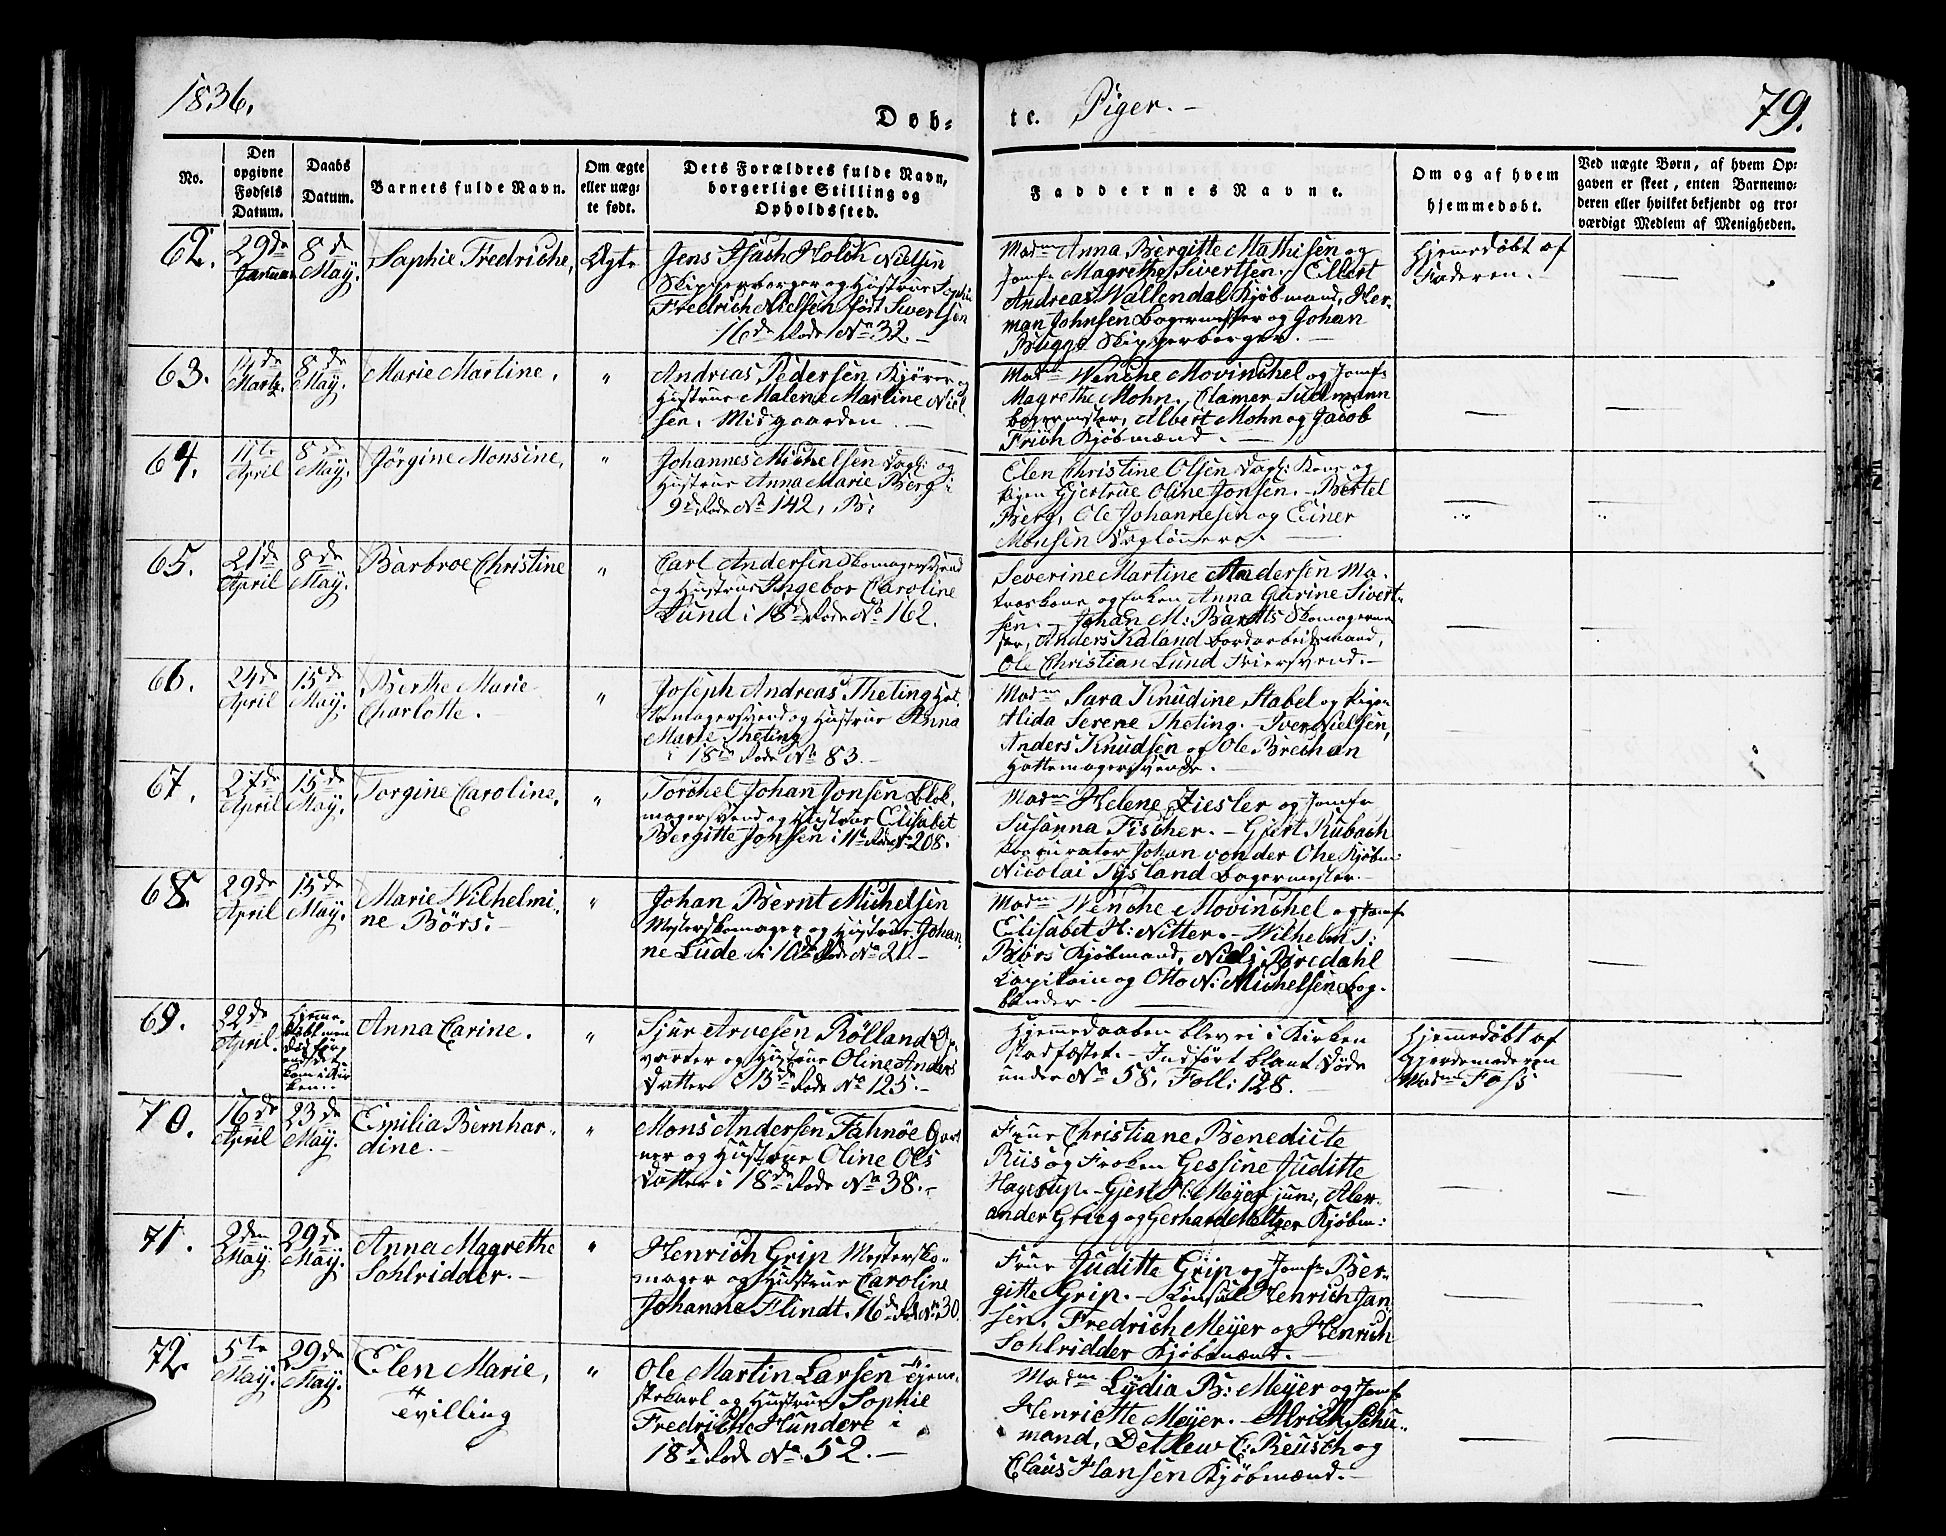 1836.
Døb-
te. Piger.-
79.
No.
Den opgivne Fødsels Datum.
Daabs Datum.
Barnets fulde Navn.
Om ægte eller uægte født.
Dets Forældres fulde Navn, borgerlige Stilling og Opholdssted.
Faddernes Navne.
Om og af hvem hjemmedøbt.
Ved uægte Børn, af hvem Opgaven er skeet, enten Barnemoderen eller hvilket bekjendt og troværdigt Medlem af Menigheden.
62.
29de Januar
8de May.
Sophie Fredriche,
Ægte
Jens Isach Holck Nielsen
Skipperborger og Hustrue Sophie
Fredrich Nielsen født Sivertsen
16de Rode No 32.-
Madm Anna Bergitte Mathisen og
Jomfr Magrethe Sivertsen. Eilert
Andreas Wallendal Kjøbmand, Her-
man Johnsen Bagermester og Johan
Brügge Skipperborger.
Hjemedøbt af
Faderen.
63.
14de Martz.
8de May.
Marie Martine,
"
Andreas Pedersen Kjører og
Hustrue Malene Martine Niel-
sen. Midgaarden.
Madm Wenche Movinchel og Jomfr
Magrethe Mohn. Clamer Sültmann
Bagermester, Albert Mohn og Jacob
Frith Kjøbmænd.
64.
11te April
8de May.
Jörgine Monsine,
"
Johannes Michelsen Dagl: og
Hustrue Anna Marie Berg i
9de Rode No 142, B:
Elen Christine Olsen Dagl: Kone og
Pigen Gjertrue Oline Jonsen.- Bertel
Berg, Ole Johannesen og Einer
Monsen Daglønnere.
65.
21de April
8de May.
Barbroe Christine
"
Carl Andersen Skomagersvend
og Hustrue Ingebor Caroline
Lund i 18de Rode No 162.
Severine Martine Andersen Ma-
troskone og Enken Anna Gurine Sivert-
sen. Johan M: Barths Skomagerme-
ster, Anders Kaland Bordarbeidsmand,
Ole Christian Lund Friersvend.-
66.
24de April
15de May.
Berthe Marie
Charlotte.
"
Joseph Andreas Theting Hat-
temagersvend og Hustrue Anna
Marie Theting
i 18de Rode No 83.-
Madm Sara Knudine Stabel og Pigen
Alida Serene Theting.- Iver Nielsen,
Anders Knudsen og Ole Brechan
Hattemagersvende.
67.
27de April
15de May.
Torgine Caroline,
"
Torchel Johan Jonsen Blok-
magersvend og Hustrue Elisabet
Bergitte Jonsen i 11te Rode No 208.
Madm Helene Ziesler og Jomfr
Susanna Fischer.- Gjert Rubach
Procurator Johan von der Ohe Kjøbm:
Nicolai Tysland Bagermester.-
68.
29de April
15de May.
Marie Wilhelmi-
ne Børs.-
"
Johan Bernt Michelsen
Mesterskomager og Hustrue Johan-
ne Lude i 10de Rode No 21.-
Madm Wenche Movinchel og Jomfr
Elisabet H: Nitter.- Wilhelm J:
Børs Kjøbmand, Niels Bredahl
Capitain og Otto N: Michelsen Bog-
binder.-
69.
22de April.
Hjeme-
døbt men
død førend det
kom i Kir-
ken.
Anna Carine.
"
Sjur Arvesen Rölland Op-
varter og Hustrue Oline Anders
Datter i 15de Rode No 125.-
Hjemmedaaben blev ei i Kirken
stadfæstet.- Indført blant Døde
under No 58, Foll: 128.
Hjemmedøbt af
Gjordemoderen
Madme Foss
70.
16de April
23de May.
Emilia Bernhar-
dine.-
"
Mons Andersen Fahnöe Gart-
ner og Hustrue Oline Ols
Datter i 18de Rode No 38.-
Frue Christiane Benedicte
Riis og Frøken Gessine Juditte
Hagerup.- Gjert H: Meyer jun:, Alex-
ander Grieg og Gerhard Meltzer Kjøbm:
71.
2den May
29de May.
Anna Magrethe
Sohlridder.-
"
Henrich Grip Mestersko-
mager og Hustrue Caroline
Johanna Flindt. 16de Rode No 30.
Frue Juditte Grip og Jomfr Ber-
gitte Grip.- Konsul Henrich Jan-
sen, Fredrich Meyer og Henrich
Sohlridder Kjøbmænd.-
72.
5te May.
29de May.
Elen Marie,
Tvilling
"
Ole Martin Larsen Tjene-
stekarl og Hustrue Sophie
Fredriche Hundere i
18de Rode No 52.-
Madm Lydia B: Meyer og Jomfr
Henriette Meyer.- Alrich Schu-
mand, Detlew C: Reusch og
Claus Hansen Kjøbmænd.-